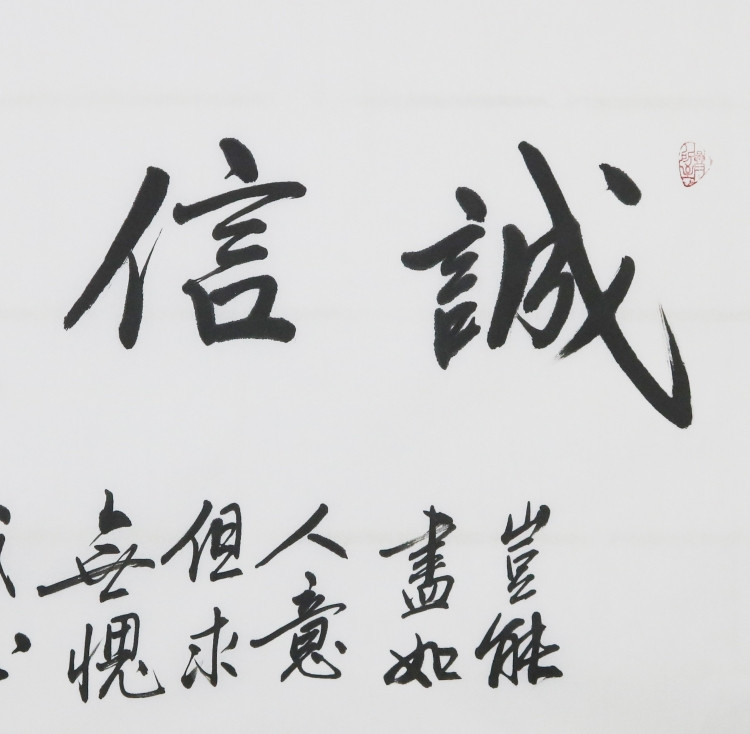 誠信
豈能
盡如
人意
但求
無愧